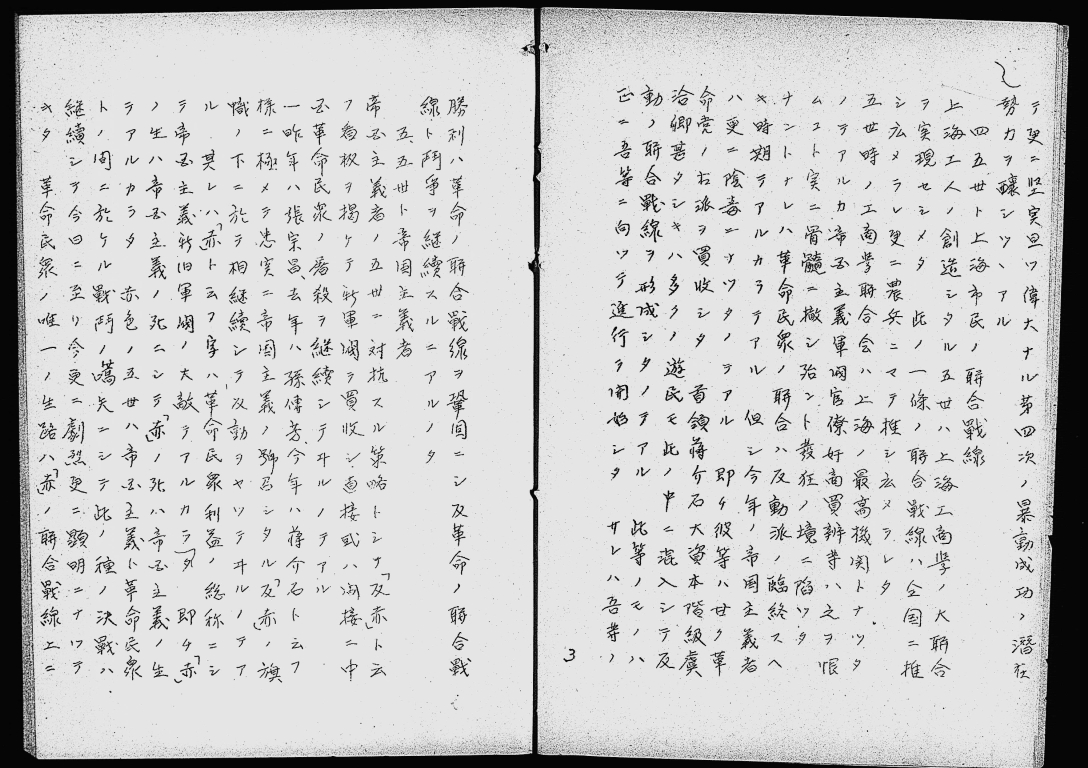 テ更ニ堅実且ツ偉大ナル第四次ノ暴動成功ノ潜在
勢力ヲ醸シツヽアル
四 五卅ト上海市民ノ聯合戰線
上海工人ノ創造シタル五卅ハ上海工商學ノ大聯合
ヲ実現セシメタ 此ノ一條ノ聯合戰線ハ全国ニ推
シ広メラレ更ニ農兵ニマテ推シ広メラレタ
五卅時ノ工商學聯合会ハ上海ノ最高機関トナツタ
ノテアルカ帝国主義軍閥官僚奸商買辨等ハ之ヲ恨
ムコト実ニ骨髓ニ撤シ殆ント發狂ノ境ニ陷ツタ
ナントナレハ革命民衆ノ聯合ハ反動派ノ臨終スヘ
キ時期テアルカラテアル 但シ今年ノ帝国主義者
ハ更ニ陰毒ニナツタノテアル 即チ彼等ハ廿ク革
命党ノ右派ヲ買收シタ 首領蒋介石大資本階級虞
洽卿甚タシキハ多クノ遊民モ此ノ中ニ混入シテ反
動ノ聯合戰線ヲ形成シタノテアル 此等ノモノハ
正ニ吾等ニ向ツテ進行ヲ開始シタ サレハ吾等ノ
3
勝利ハ革命ノ聯合戰線ヲ鞏固ニシ反革命ノ聯合戰
線ト鬥爭ヲ継続スルニアルノタ
五、五卅ト帝国主義者
帝国主義者ノ五卅ニ対抗スル策略トシナ「反赤」ト云
フ看板ヲ揭ケテ新軍閥ヲ買收シ直接或ハ间接ニ中
国革命民衆ノ屠殺ヲ継続シテヰルノテアル
一昨年ハ張宗昌、去年ハ孫傳芳今年ハ蒋介石ト云フ
様ニ極メテ忠実ニ帝国主義ノ號召シタル「反赤」ノ旗
幟ノ下ニ於テ相継続シテ反動ヲヤツテヰルノテア
ル 其レハ「赤」ト云フ字ハ革命民衆利益ノ総称ニシ
テ帝国主義新旧軍閥ノ大敵テアルカラタ 即チ「赤」
ノ生ハ帝国主義ノ死ニシテ「赤」ノ死ハ帝国主義ノ生
テアルカラタ 赤色ノ五卅ハ帝国主義ト革命民衆
トノ间ニ於ケル戰鬥ノ嚆矢ニシテ此ノ種ノ決戰ハ
継續シテ今日ニ至リ今更ニ劇烈更ニ顕明ニナツテ
キタ 革命民衆ノ唯一ノ生路ハ「赤」ノ聯合戰線上ニ